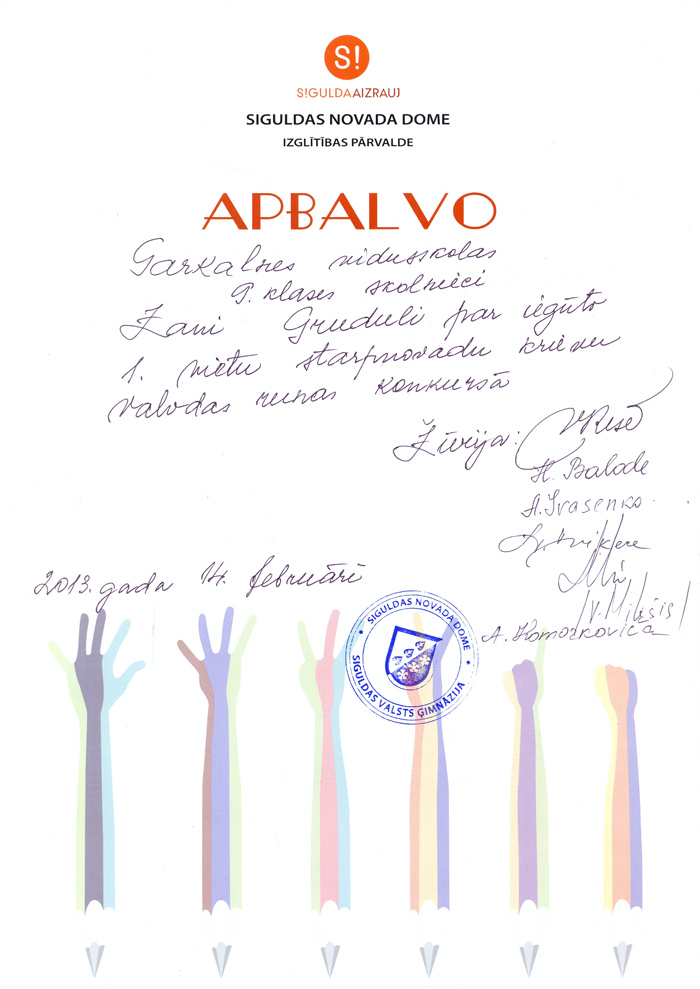 S!
S!GULDAAIZRAUJ
SIGULDAS NOVADA DOME
IZGLĪTĪBAS PĀRVALDE
APBALVO
Garkalnes vidusskolas
9. klases skolnieci
Zani Gruduli par iegūto
1. vietu starpnovadu krievu
valodas runas konkursā
Žūrija:
H. Balode
A. Ivasenko
A. Komorkoviča
2013. gada 14. februārī
SIGULDAS NOVADA DOME
SIGULDAS VALSTS ĢIMNĀZIJA